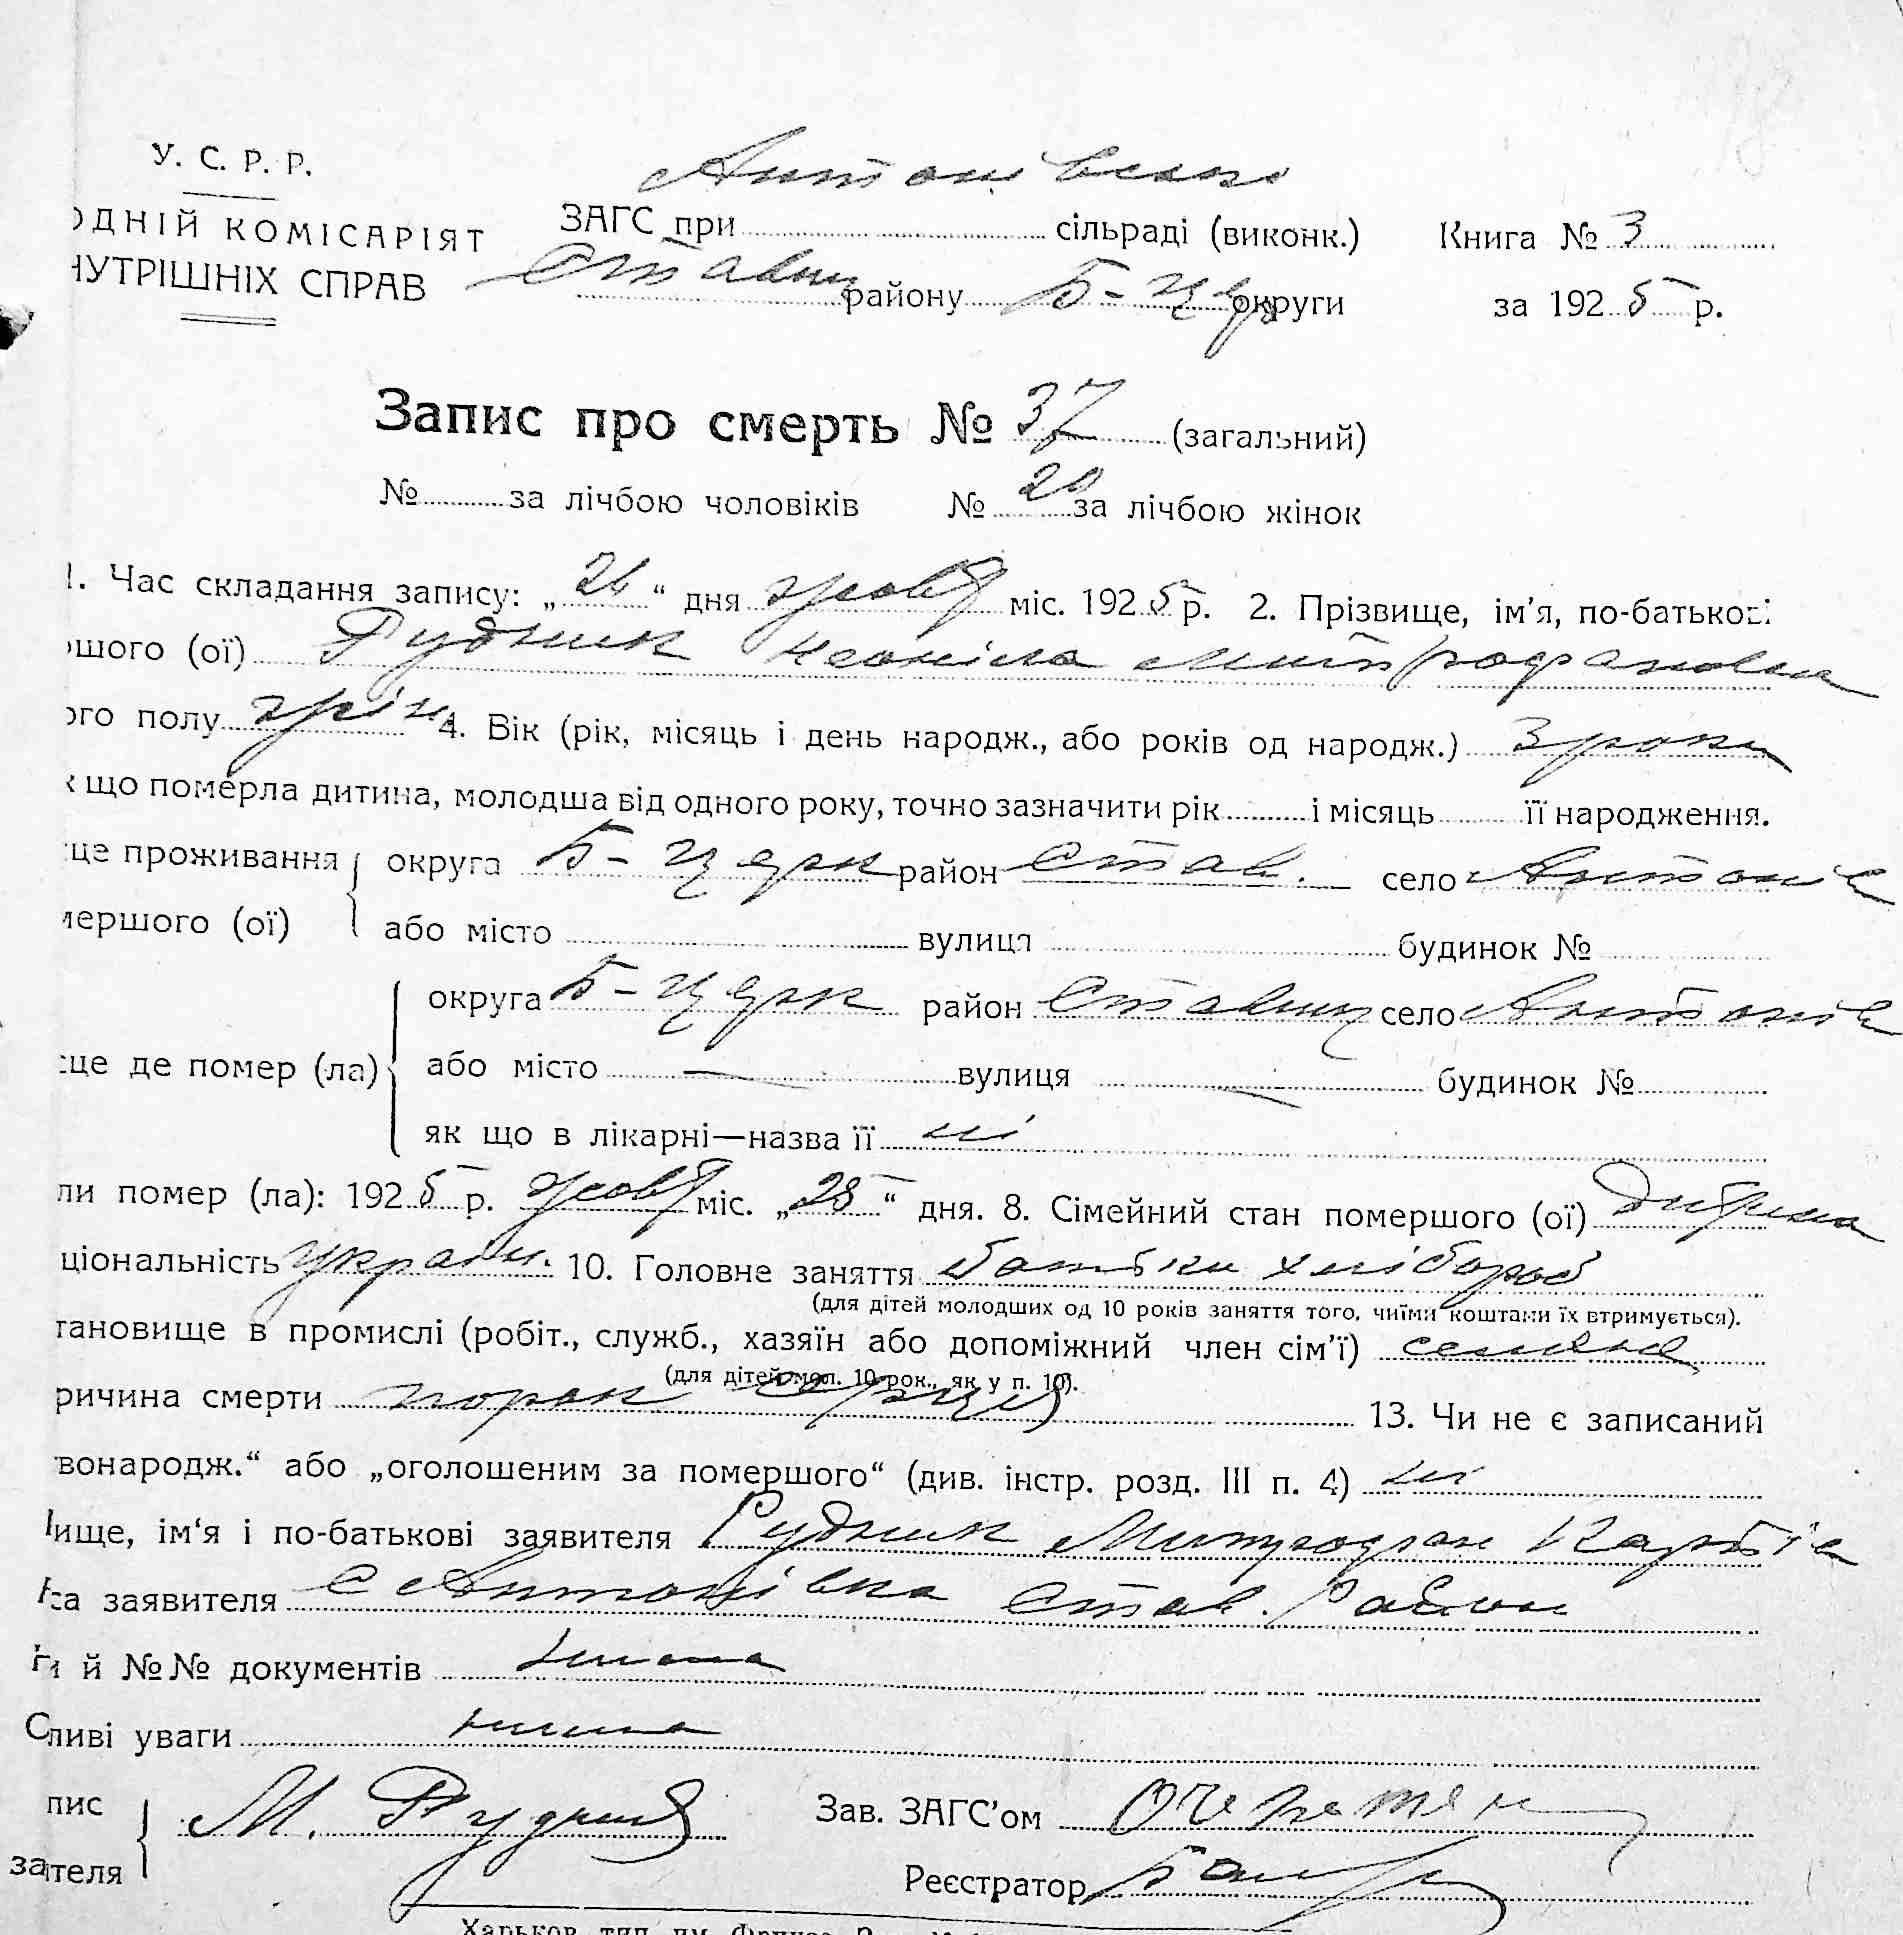 У. С. Р. Р.
ОДНІЙ КОМІСАРІЯТ
НУТРІШНІХ СПРАВ
ЗАГС при Антонівські сільраді (виконк.) Книга № 3
Ставищ району Б-Церк округи за 1925 р.
Запис про смерть № 37 (загальний)
№ за лічбою чоловіків № 20 за лічбою жінок
1. Час складання запису: „26“ дня жовт міс. 1925 р. 2. Прізвище, ім'я, по-батькові
ршого (ої) Рудник Неоніла Митрофановна
ого полу жіноч 4. Вік (рік, місяць і день народж., або років од народж.) 3 роки
к що померла дитина, молодша від одного року, точно зазначити рік і місяць її народження.
це проживання округа Б-Церк район Став. село Антонів
мершого (ої) або місто вулиця будинок №
округа Б-Церк район Ставищ село Антонів
сце де помер (ла) або місто — вулиця — будинок №
як що в лікарні—назва її ні
ли помер (ла): 1925 р. жовт міс. „25“ дня. 8. Сімейний стан помершого (ої) Дитина
ціональність україн. 10. Головне заняття батьки хлібороб
(для дітей молодших од 10 років заняття того, чиїми коштами їх втримується).
тановище в промислі (робіт., служб., хазяїн або допоміжний член сім'ї)
(для дітей мол. 10 рок., як у п. 10).
ричина смерти порок серця 13. Чи не є записаний
вонародж.“ або „оголошеним за помершого“ (див. інстр. розд. III п. 4) ні
ище, ім'я і по-батькові заявителя Рудник Митрофан
са заявителя С Антонівка Став. Район
и й №№ документів нима
ливі уваги нима
пис М. Рудник Зав. ЗАГС'ом Очеретян
зателя Реєстратор
Харьков тип. им. Фрунзе